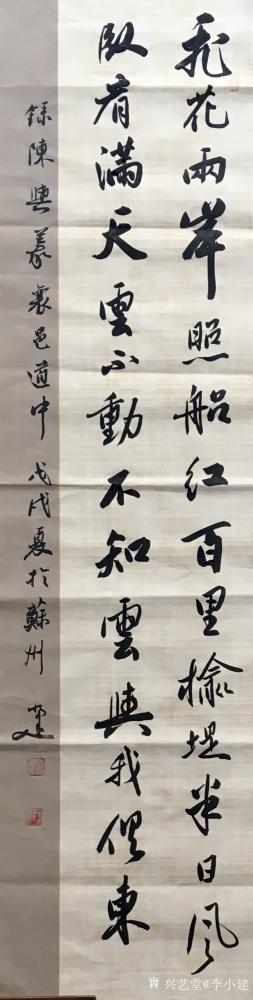 飛花兩岸照船紅百里榆堤半日風
臥看滿天雲不動不知雲與我俱東
錄陳與義襄邑道中 戊戌夏於蘇州 小建
兴艺堂@李小建